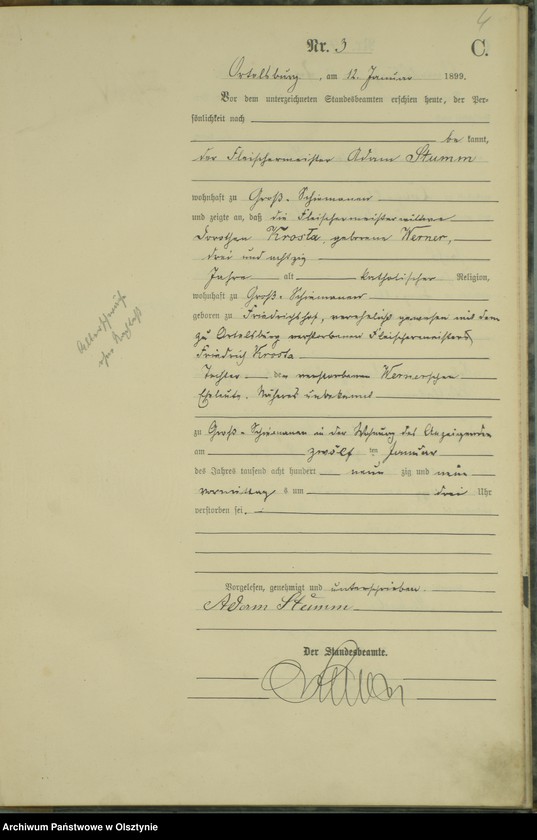 4
Nr. 3
C.
Ortelsburg, am 12. Januar 1899.
Vor dem unterzeichneten Standesbeamten erschien heute, der Per-
sönlichkeit nach
be kannt,
der Fleischermeister Adam Stumm
wohnhaft zu Groß-Schiemanen
und zeigte an, daß die Fleischermeisterwittwe
Dorothea Krosta, geborene Werner,
drei und achtzig
Jahre alt katholischer Religion,
wohnhaft zu Groß-Schiemanen
geboren zu Friedrichshof, verehelicht gewesen mit dem
zu Ortelsburg verstorbenen Fleischermeister
Friedrich Krosta
Tochter der verstorbenen Wernerschen
Eheleute. Näheres unbekannt
zu Groß-Schiemanen in der Wohnung des Anzeigenden
am zwölf ten Januar
des Jahres tausend acht hundert neun zig und neun
vormittag s um drei Uhr
verstorben sei.
Vorgelesen, genehmigt und unterschrieben
Adam Stumm
Der Standesbeamte.
Archiwum Państwowe w Olsztynie